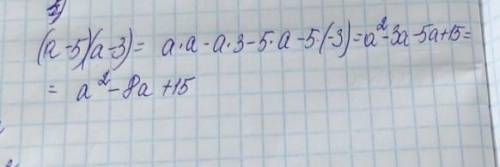 2)
(a-5)(a-3) = a·a - a·3 - 5·a - 5·(-3) = a² - 3a - 5a + 15 =
= a² - 8a + 15